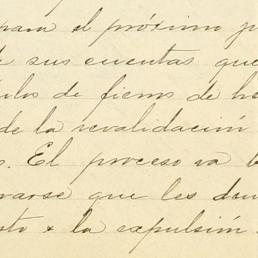 para el próximo j
sus cuentas que
los de fierros de he
de la revalidación
s. El proceso va b
rarse que les dan
sto x la expulsión